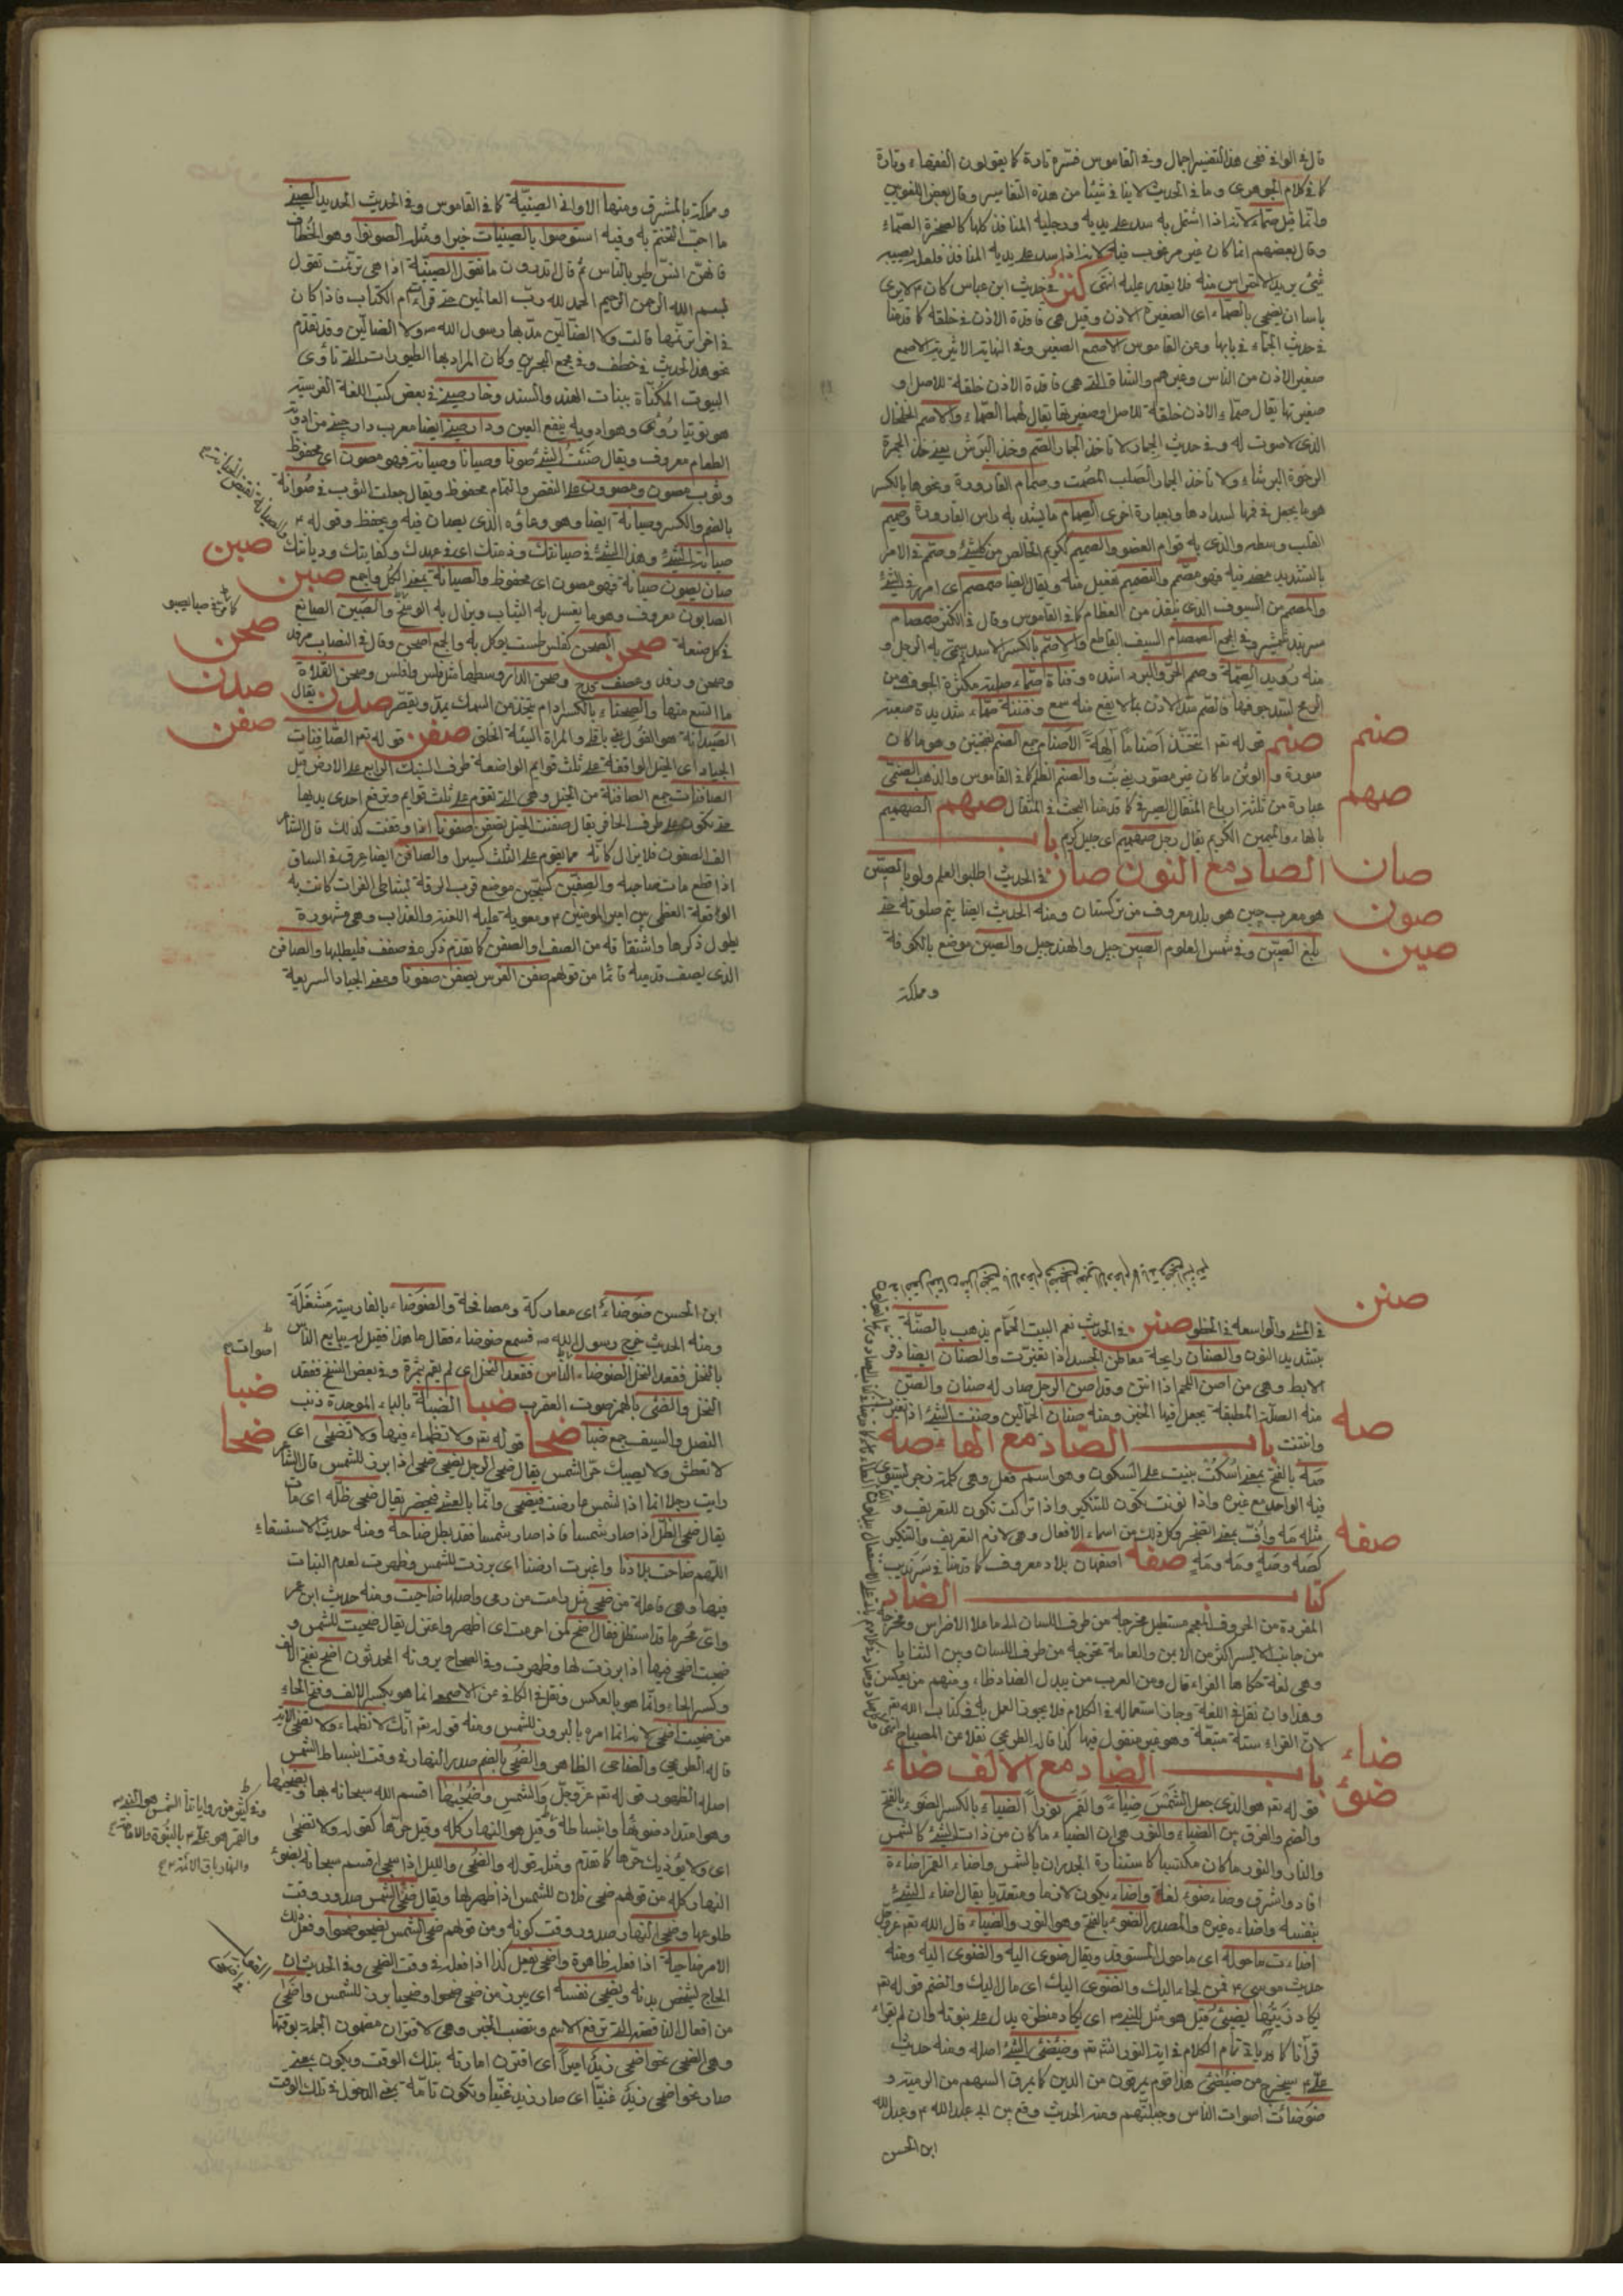 قال في الوافي ففي هذا التفسير اجمال وفي القاموس فسّره تارة كما يقولون الفقهاء وتارة
كما في كلام الجوهري وما في الحديث لا ينافي شيئا من هذه التفاسير وقال بعض اللغويين
وانما قيل صمّاء لانه اذا اشتمل به سد على يديه ورجليه المنافذ كلها كالصخرة الصمّاء
وقال بعضهم انما كان غير مرغوب فيه لانه اذا سد على يديه المنافذ فلعله يصيبه
شيء يريد الاحتراس منه فلا يقدر عليه انتهى كنز في حديث ابن عباس كان لا يرى
باسا ان يضحى بالصمّاء اى الصغيرة الاذن وقيل هي فاقدة الاذن في خلقه كما قدمنا
في حديث الجمّاء في بابها وعن القاموس الاصمع الصغير وفي النهاية الاثيرية الاصمع
صغير الاذن من الناس وغيرهم والشاة التي هي فاقدة الاذن خلقة للاصل او
صغيرتها يقال صمّاء الاذن خلقة للاصل او صغيرتها يقال لهما الصمّاء والاصم الخلخال
الذى لا صوت له وفي حديث الجمار لا تاخذ الجمار الصم وخذ البرش يعني خذ الحجرة
الرخوة البرشاء ولا تاخذ الجمار الصلب المصمت وصمام القارورة ونحوها بالكسر
هو ما يجعل في فمها لسدادها وبعبارة اخرى الصمام ما يشد به راس القارورة وصميم
القلب وسطه والذى به قوام العضو والصميم كريم الخالص من كل شئ وصمّم في الامر
بالتشديد مضى فيه فهو مصمّم والتصميم تفعيل منه ويقال ايضا صمصم اى امر في الشئ
والمصمم من السيوف الذى ينفذ من العظام كما في القاموس وقال في الكنز صمصام
الصمصام السيف القاطع والاصمّ بالكسر الاسد سمّي به الرجل و
منه رويد الصمّة وصم الحر والبرد اشده وقناة صمّاء صلبة مكتنزة الجوف من
صنم قوله تع اتتخذ اصناما آلهة الاصنام جمع الصنم بفتحتين وهو ما كان
صورة والوثن ما كان غير مصور
عبارة من ثلثة ارباع المثقال الصيرفي كما قدمنا البحث في المثقال صهم الصهميم
بالهاء والميمين الكريم يقال رجل صهميم اى جبل كريم باب
الصاد مع النون صان في الحديث اطلبوا العلم ولو بالصين
هو معرب چين هو بلد معروف من تركستان ومنه الحديث ايضا يتم صلوته حتى
بلغ الصين وفي شمس العلوم الصين جبل والهند جبل والصين موضع بالكوفة
صنم
صهم
صان
صون
صين
ومملكة
ومملكة بالمشرق ومنها الاواني الصينيّة كما في القاموس وفي الحديث الحديد الصيني
ما احبّ التختم به وفيه استوصوا بالصينيات خيرا ومثله الصونوا وهو الخطّاف
فانهنّ آنس طير بالناس ثم قال اتدرون ما تقول الصينيّة اذا هي ترنّمت تقول
بسم الله الرحمن الرحيم الحمد لله رب العالمين حتى قراءة ام الكتاب فاذا كان
في اخر ترنّمها قالت ولا الضالّين مدّ بها رسول الله ص ولا الضالّين وقد تقدّم
نحو هذا الحديث في خطف وفي مجمع البحرين وكان المراد بها الطيورات التي تأوى
البيوت المكنّاة ببنات الهند والسند وخار صيني في بعض كتب اللغة الفرسية
هو توتيا روى وهو ادوية ينفع العين ودار صيني ايضا معرب دار چيني من ادوية
الطعام معروف ويقال صنت الشئ صونا وصيانا وصيانة فهو مصون اى محفوظ
وثوب مصون ومصوون على النقص والتمام محفوظ ويقال جعلت الثوب في صوانه
بالضم والكسر وصيانه ايضا وهو وعاؤه الذى يصان فيه ويحفظ وقوله
صيانة الشئ وهذا الشئ في صيانتك وذمتك اى في عهدك وكفايتك وديانتك
صان يصون صيانة فهو مصون اى محفوظ والصيانة بمعنى الكل واجمع صبن
الصابون معروف وهو ما يغسل به الثياب ويزال به الوسخ والصبين الصانع
في كل صنعة صحن الصحن كفلس طست يؤكل به والجمع اصحن وقال في النصاب
وصحن الدار وسطها مثل فلس وافلس وصحن الفلاة
ما اتسع منها والصحناء بالكسر ادام يتخذ من السمك يمد ويقصر صدن يقال
الصيدانة هو الغول والمراة السيئة الخلق صفن قوله تع الصافنات
الجياد اى الخيل الواقفة على ثلث قوائم الواضعة طرف السنبك الرابع على الارض قيل
الصافنات جمع الصافنة من الخيل وهي التي تقوم على ثلث قوائم وترفع احدى يديها
حتى تكون على طرف الحافر يقال صفنت الخيل تصفن صفونا اذا وقفت كذلك قال الشاعر
الف الصفون فلا يزال كانّه مما يقوم على الثلث كسيرا والصافن ايضا عرق في الساق
اذا قطع مات صاحبه والصفين كسجّين موضع قرب الرقة بشاطئ الفرات كانت به
الوقعة العظمى بين امير المومنين ع ومعوية عليه اللعنة والعذاب وهي مشهورة
يطول ذكرها واشتقاقه من الصف او الصفن كما تقدم ذكره في صفف فليطلبها والصافن
الذى يصف قدميه قائما من قولهم صفن الفرس يصفن صفونا ومعنى الجياد السريعة
صبن
صحن
صدن
صفن
في المشي والواسعة في الخطو صنن في الحديث نعم البيت الحمّام يذهب بالصنّة
بتشديد النون والصنان رايحة معاطن الجسد اذا تغيّرت والصنان ايضا ذفر
الابط وهي من اصن اللحم اذا انتن وقد اصن الرجل صار له صنان والصنّ
منه السلة المطبقة يجعل فيها الخبز ومنه صنان الحمّالين وصنت الشئ اذا تغير
وانتنت باب الصّاد مع الهاء صه
صه بالفتح بمعنى اسكت بنيت على السكون وهو اسم فعل وهي كلمة زجر يستوى
فيه الواحد مع غيره واذا نونت تكون للتنكير واذا تركت تكون للتعريف و
مثله مه واف بمعنى الضجر وكل ذلك من اسماء الافعال وهي لازم التعريف والتنكير
كصه وصهٍ ومه ومهٍ صفه اصفهان بلاد معروف كما قدمنا في سرنديب
كتاب الضاد
المفردة من الحروف المعجم مستطيل مخرجه من طرف اللسان الى ما على الاضراس ومخرجها
من جانب الايسر اكثر من الايمن والعامة تخرجه من طرف اللسان وبين الثنايا
وهي لغة حكاها الفراء قال ومن العرب من يبدل الضاد ظاء ومنهم من يعكس
وهذا وان نقل في اللغة وجاز استعماله في الكلام فلا يجوز العمل به في كتاب الله تع
لانّ القراءة سنّة متبعة وهو غير منقول فيها كذا قاله الطريحي نقلا عن المصباح انتهى
باب الضاد مع الالف ضاء
قوله تع هو الذى جعل الشمس ضياء والقمر نورا الضياء بالكسر الضوء بالفتح
والضم والفرق بين الضياء والنور هي ان الضياء ما كان من ذات الشئ كالشمس
والنار والنور ما كان مكتسبا كاستنارة الجدران بالشمس واضاء القمر اضاءة
انار واشرق وضاء ضوء لغة واضاء يكون لازما ومتعديا يقال اضاء الشئ
بنفسه واضاءه غيره والمصدر الضوء بالفتح وهو النور والضياء قال الله تع عزّ وجلّ
اضاءت ما حوله اى ما حول المستوقد ويقال ضوى اليه والضوى اليه ومنه
حديث موسى ع فمن لجاء اليك والضوى اليك اى مال اليك والضم قوله تع
يكاد زيتها يضيئ قيل هو مثل للنبي ص اى يكاد منظره يدل على نبوته وان لم يقراء
قرآنا كما ياتي تمام الكلام في اية النور انشاء تع وضئضئ الشئ اصله ومنه حديث
علي ع سيخرج من ضئضئ هذا قوم يمرقون من الدين كما يمرق السهم من الرمية و
ضوضات اصوات الناس وجلبتهم ومنه الحديث وقع بين ابي عبد الله ع وعبد الله
صنن
صه
صفه
ضاء
ضوئ
ابن الحسن
ابن الحسن ضوضاء اى معاركة ومصافحة والضوضاء بالفارسية مشغلة
ومنه الحديث خرج رسول الله ص فسمع ضوضاء فقال ما هذا فقيل له يبايع الناس
بالنخل فقعد النخل الضوضاء الناس فقعد النخل اى لم يقم بثمرة وفي بعض النسخ ففقد
النخل والضئى بالهمز صوت العقرب ضبا الضباة بالباء الموحدة ذنب
النصل والسيف جمع ضبا ضحا قوله تع ولا تظماء فيها ولا تضحى اى
لا تعطش ولا يصيبك حرّ الشمس يقال ضحى الرجل يضحى ضحى اذا برز للشمس قال الشاعر
رايت رجلا امّا اذا الشمس عارضت فيضحى وامّا بالعشى فيخصر يقال ضحى ظلّه اى مات
يقال ضحى الظل اذا صار شمسا فاذا صار شمسا فقد بطل صاحبه ومنه حديث الاستسقاء
اللهم ضاحت بلادنا واغبرت ارضنا اى برزت للشمس وظهرت لعدم النبات
فيها وهي فاعلة من ضحى مثل رامت من رمى واصلها ضاحيت ومنه حديث ابن عمر
وراى محرما قد استظل فقال اضح لمن احرمت اى اظهر واعتزل يقال ضحيت للشمس و
ضحيت اضحى فيها اذا برزت لها وظهرت وفي الصحاح يرونه المحدثون اضح بفتح الالف
وكسر الحاء وانّما هو بالعكس ونقل في الكافي عن الاصمعي انما هو بكسر الالف وفتح الحاء
من ضحيت اضحى لانه انما امره بالبروز للشمس ومنه قوله تع انّك لا تظماء ولا تضحى
قاله الطريحي والضاحى الظاهر والضحى بالضم صدر النهار في وقت انبساط الشمس
اصله الظهور قوله تع عزّ وجلّ والشمس وضحيها اقسم الله سبحانه بها وبضحيها
وهو امتداد ضوئها وانبساطه وقيل هو النهار كله وقيل حرّها كقوله ولا تضحى
اى ولا يؤذيك حرّها كما تقدم ومثله قوله والضحى والليل اذا سجى اقسم سبحانه بضوء
النهار كله من قولهم ضحى فلان للشمس اذا ظهر لها ويقال ضحى الشمس صدور وقت
طلوعها وضحى النهار صدور وقت كونه ومن قولهم ضحى الشمس يضحو ضحوا وفعل ذلك
الامر ضاحية اذا فعله ظاهرة واضحى يفعل كذا اذا فعله في وقت الضحى وفي الحديث ان
الحاج ليشخص بدنه ويضحى نفسه اى يبرز من ضحى ضحوا وضحيا برز للشمس واضحى
من افعال الناقصة التي ترفع الاسم وتنصب الخبر وهي لاقتران مضمون الجملة بوقتها
وهي الضحى نحو اضحى زيد اميرا اى اقترن امارته بتلك الوقت ويكون بمعنى
صار نحو اضحى زيد غنيّا اى صار زيد غنيا وتكون تامّة بمعنى الدخول في تلك الوقت
اصوات
ضبا
ضحا